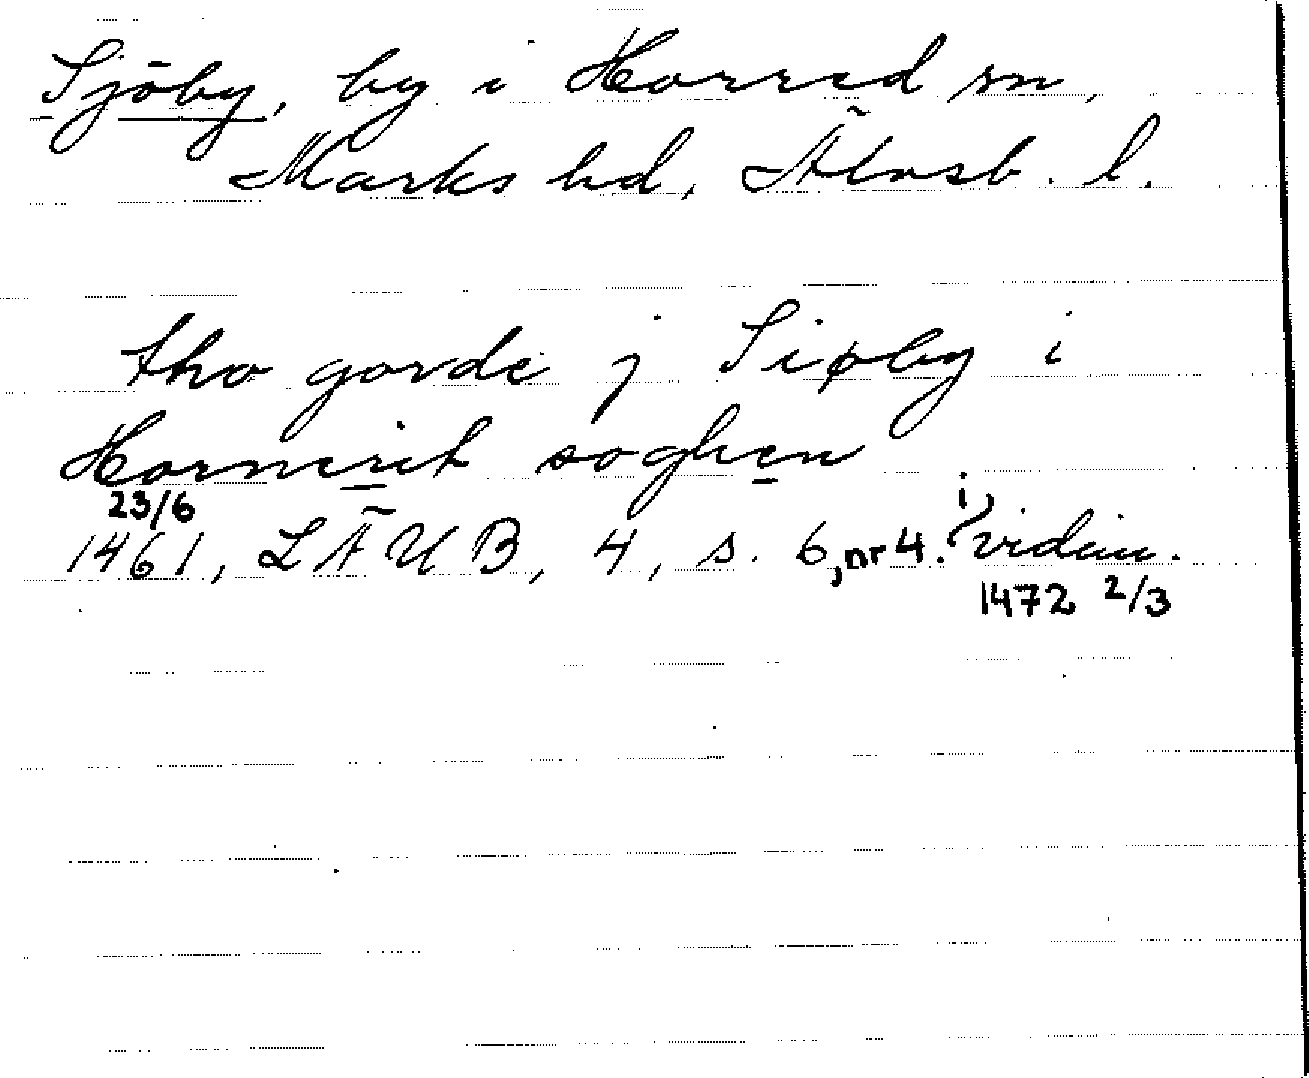 Sjöby, by i Horred sn,
Marks hd, Älvsb. l.
tho gorde j Siøby i
Hornerit soghen
23/6
1461, LÄUB, 4, s. 6, nr 4. i vidim.
1472 2/3